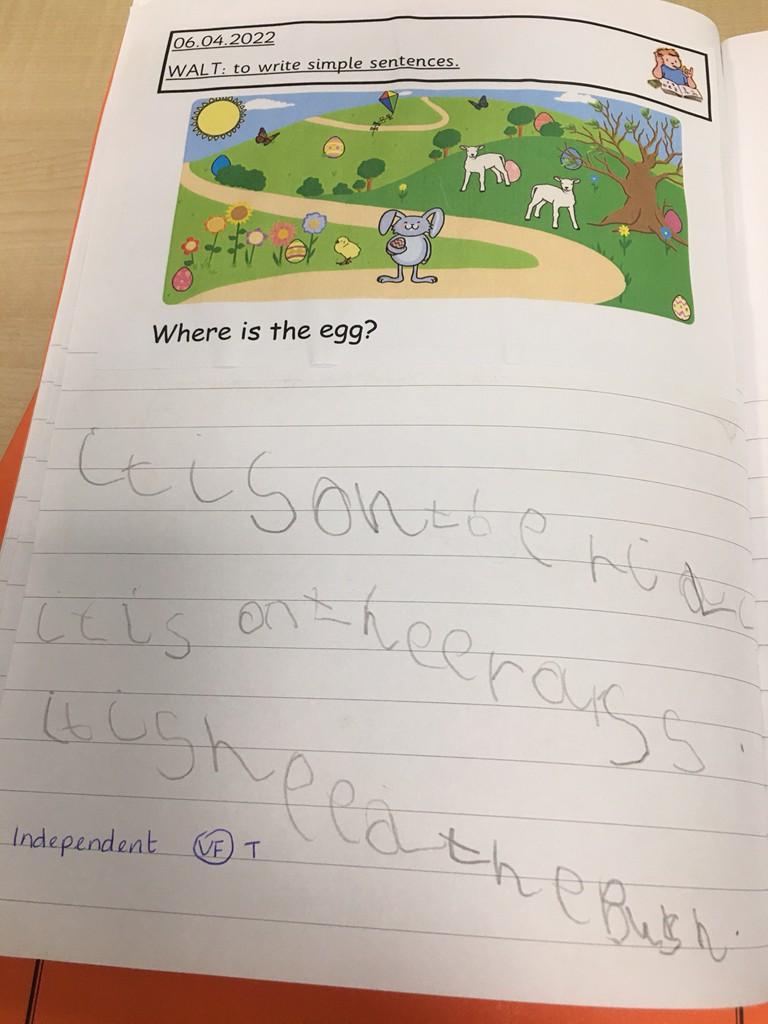 06.04.2022
WALT: to write simple sentences.
Where is the egg?
it is on the
it is on the erass.
it is heed the Bush.
Independent VF T